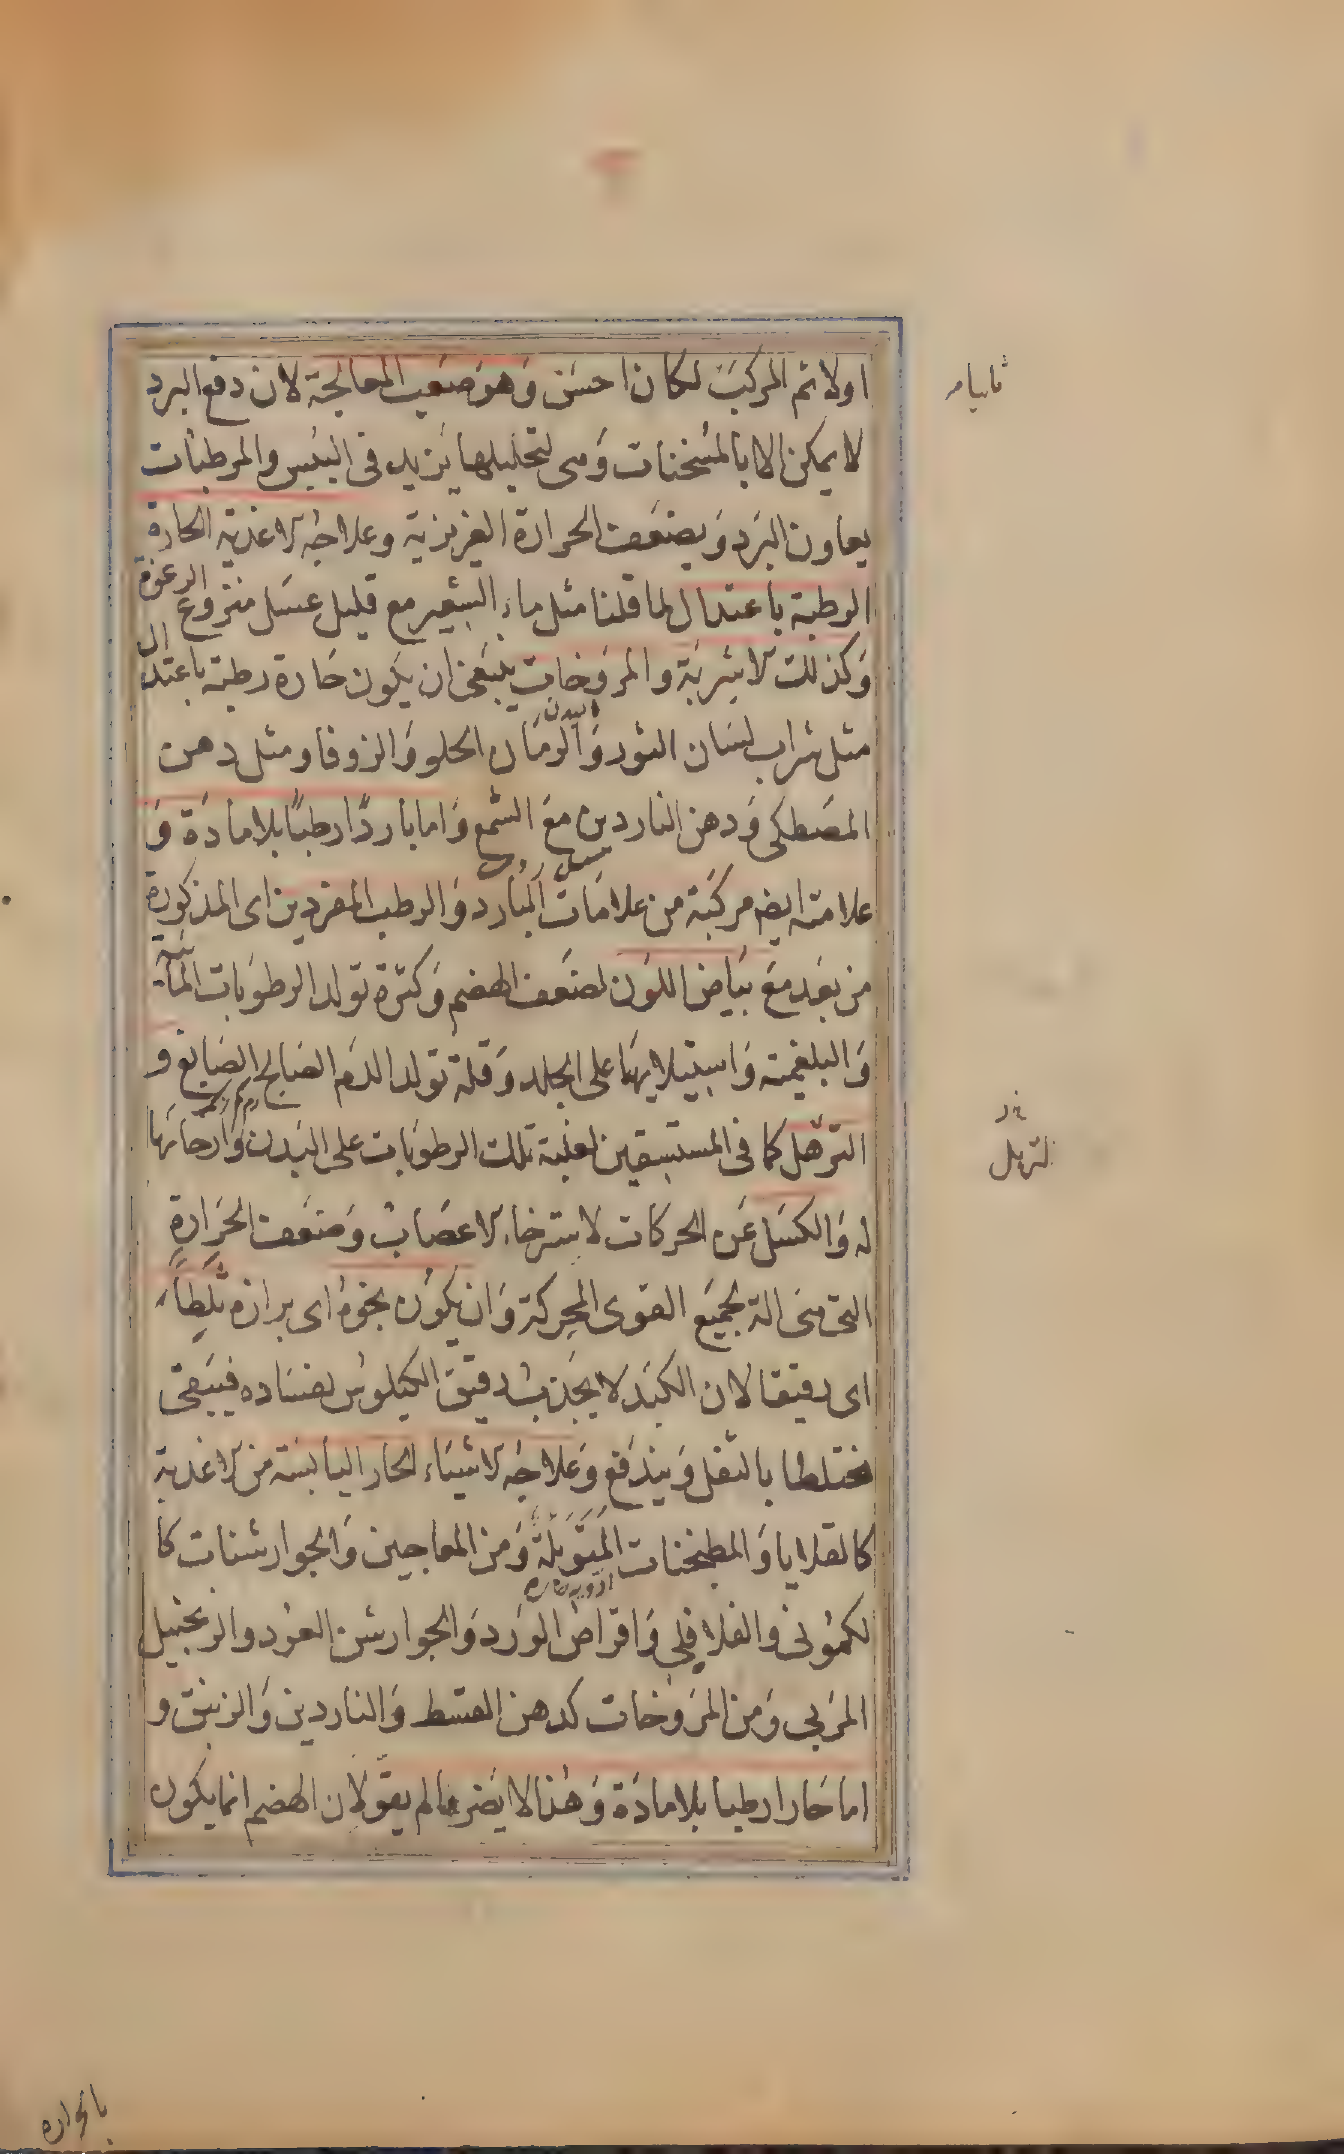 اولا ثم المركب لكان احسن وهو صعب المعالجة لان دفع البرد
لا يمكن الا بالمسخنات وهى لتحليلها يزيد فى اليبس والمرطبات
يعاون البرد ويضعف الحرارة الغريزية وعلاجه الاغذية الحارة
الرطبة باعتدال لما قلنا مثل ماء الشعير مع قليل عسل منزوع الرغوة
وكذلك الاشربة والمروخات ينبغى ان يكون حارة رطبة باعتدال
مثل شراب لسان الثور والرمان الحلو والزوفا ومثل دهن
المصطكى ودهن الناردين مع الشمع واما باردًا رطبًا بلا مادة و
علامته ايضا مركبة من علامات البارد والرطب المفردين اى المذكورة
من بعد مع بياض اللون لضعف الهضم وكثرة تولد الرطوبات المائية
والبلغمية واستيلايها على الجلد وقلة تولد الدم الصالح الصابغ و
الترهل كما فى المستسقين لغلبة تلك الرطوبات على البدن وارخائها
له والكسل عن الحركات لاسترخاء الاعصاب وضعف الحرارة
التى هى الة لجميع القوى المحركة وان يكون نجوه اى برازه ثلطا
اى رقيقا لان الكبد لا يجذب رقيق الكيلوس لفساده فيبقى
مختلطا بالثفل ويندفع وعلاجه الاشياء الحار اليابسة من الاغذية
كالقلايا والمطجنات المتوبلة ومن المعاجين والجوارشنات كا
لكمونى والفلافلى واقراص الورد والجوارشن العود والزنجبيل
المربى ومن المروخات كدهن القسط والناردين والزنبق و
اما حارا رطبا بلا مادة وهذا لا يضر ما لم يقو لان الهضم انما يكون
بالحرارة